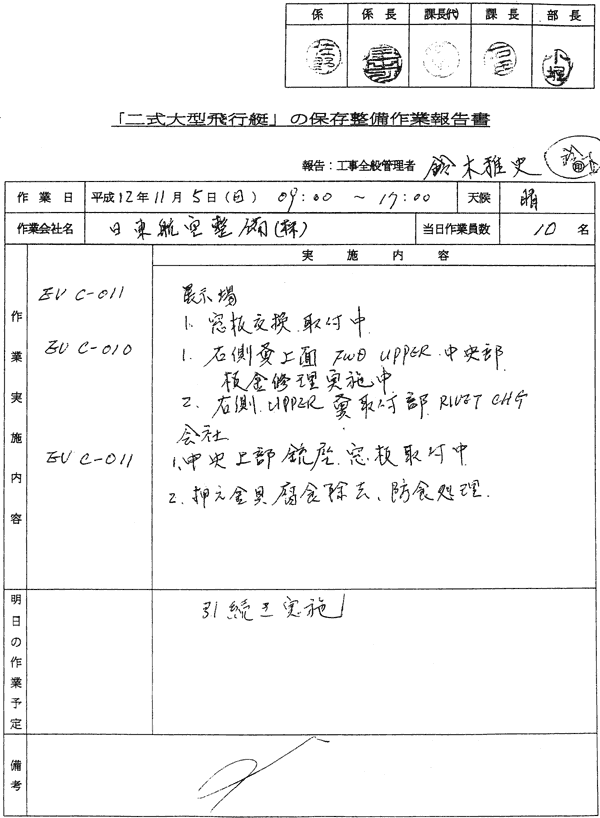 係 係長 課長代 課長 部長
小堀
「二式大型飛行艇」の保存整備作業報告書
報告：工事全般管理者 鈴木雅史
作業日 平成12年11月5日(日) 09:00 ～ 17:00 天候 晴
作業会社名 日東航空整備(株) 当日作業員数 10 名
作業実施内容
実施内容
展示場
EU C-011 1. 窓板交換、取付中
EU C-010 1. 右側翼上面 FWD UPPER 中央部
板金修理実施中
2. 右側 UPPER 翼取付部 RIVET CHG
会社
EU C-011 1. 中央上部銃座、窓板取付中
2. 押え金具腐食除去、防食処理.
明日の作業予定
引続き実施
備考